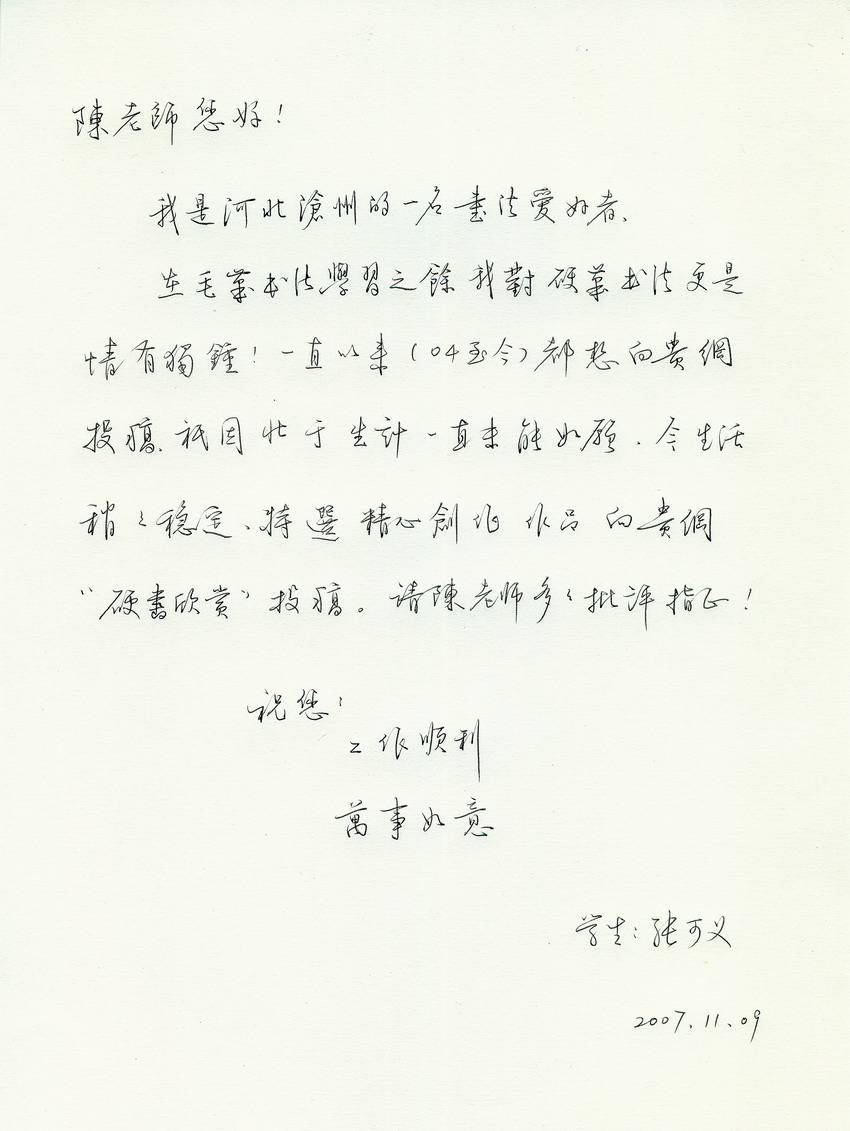 陳老師您好!
我是河北滄州的一名書法愛好者、
在毛筆书法學習之餘我對硬筆书法更是
情有獨鍾!一直以来(04至今)都想向貴網
投稿、祇因忙于生計一直未能如願.今生活
稍々穩定、特選精心創作作品向貴網
“硬書欣赏”投稿。请陳老师多々批评指正!
祝您:
工作顺利
萬事如意
学生:张可义
2007.11.09